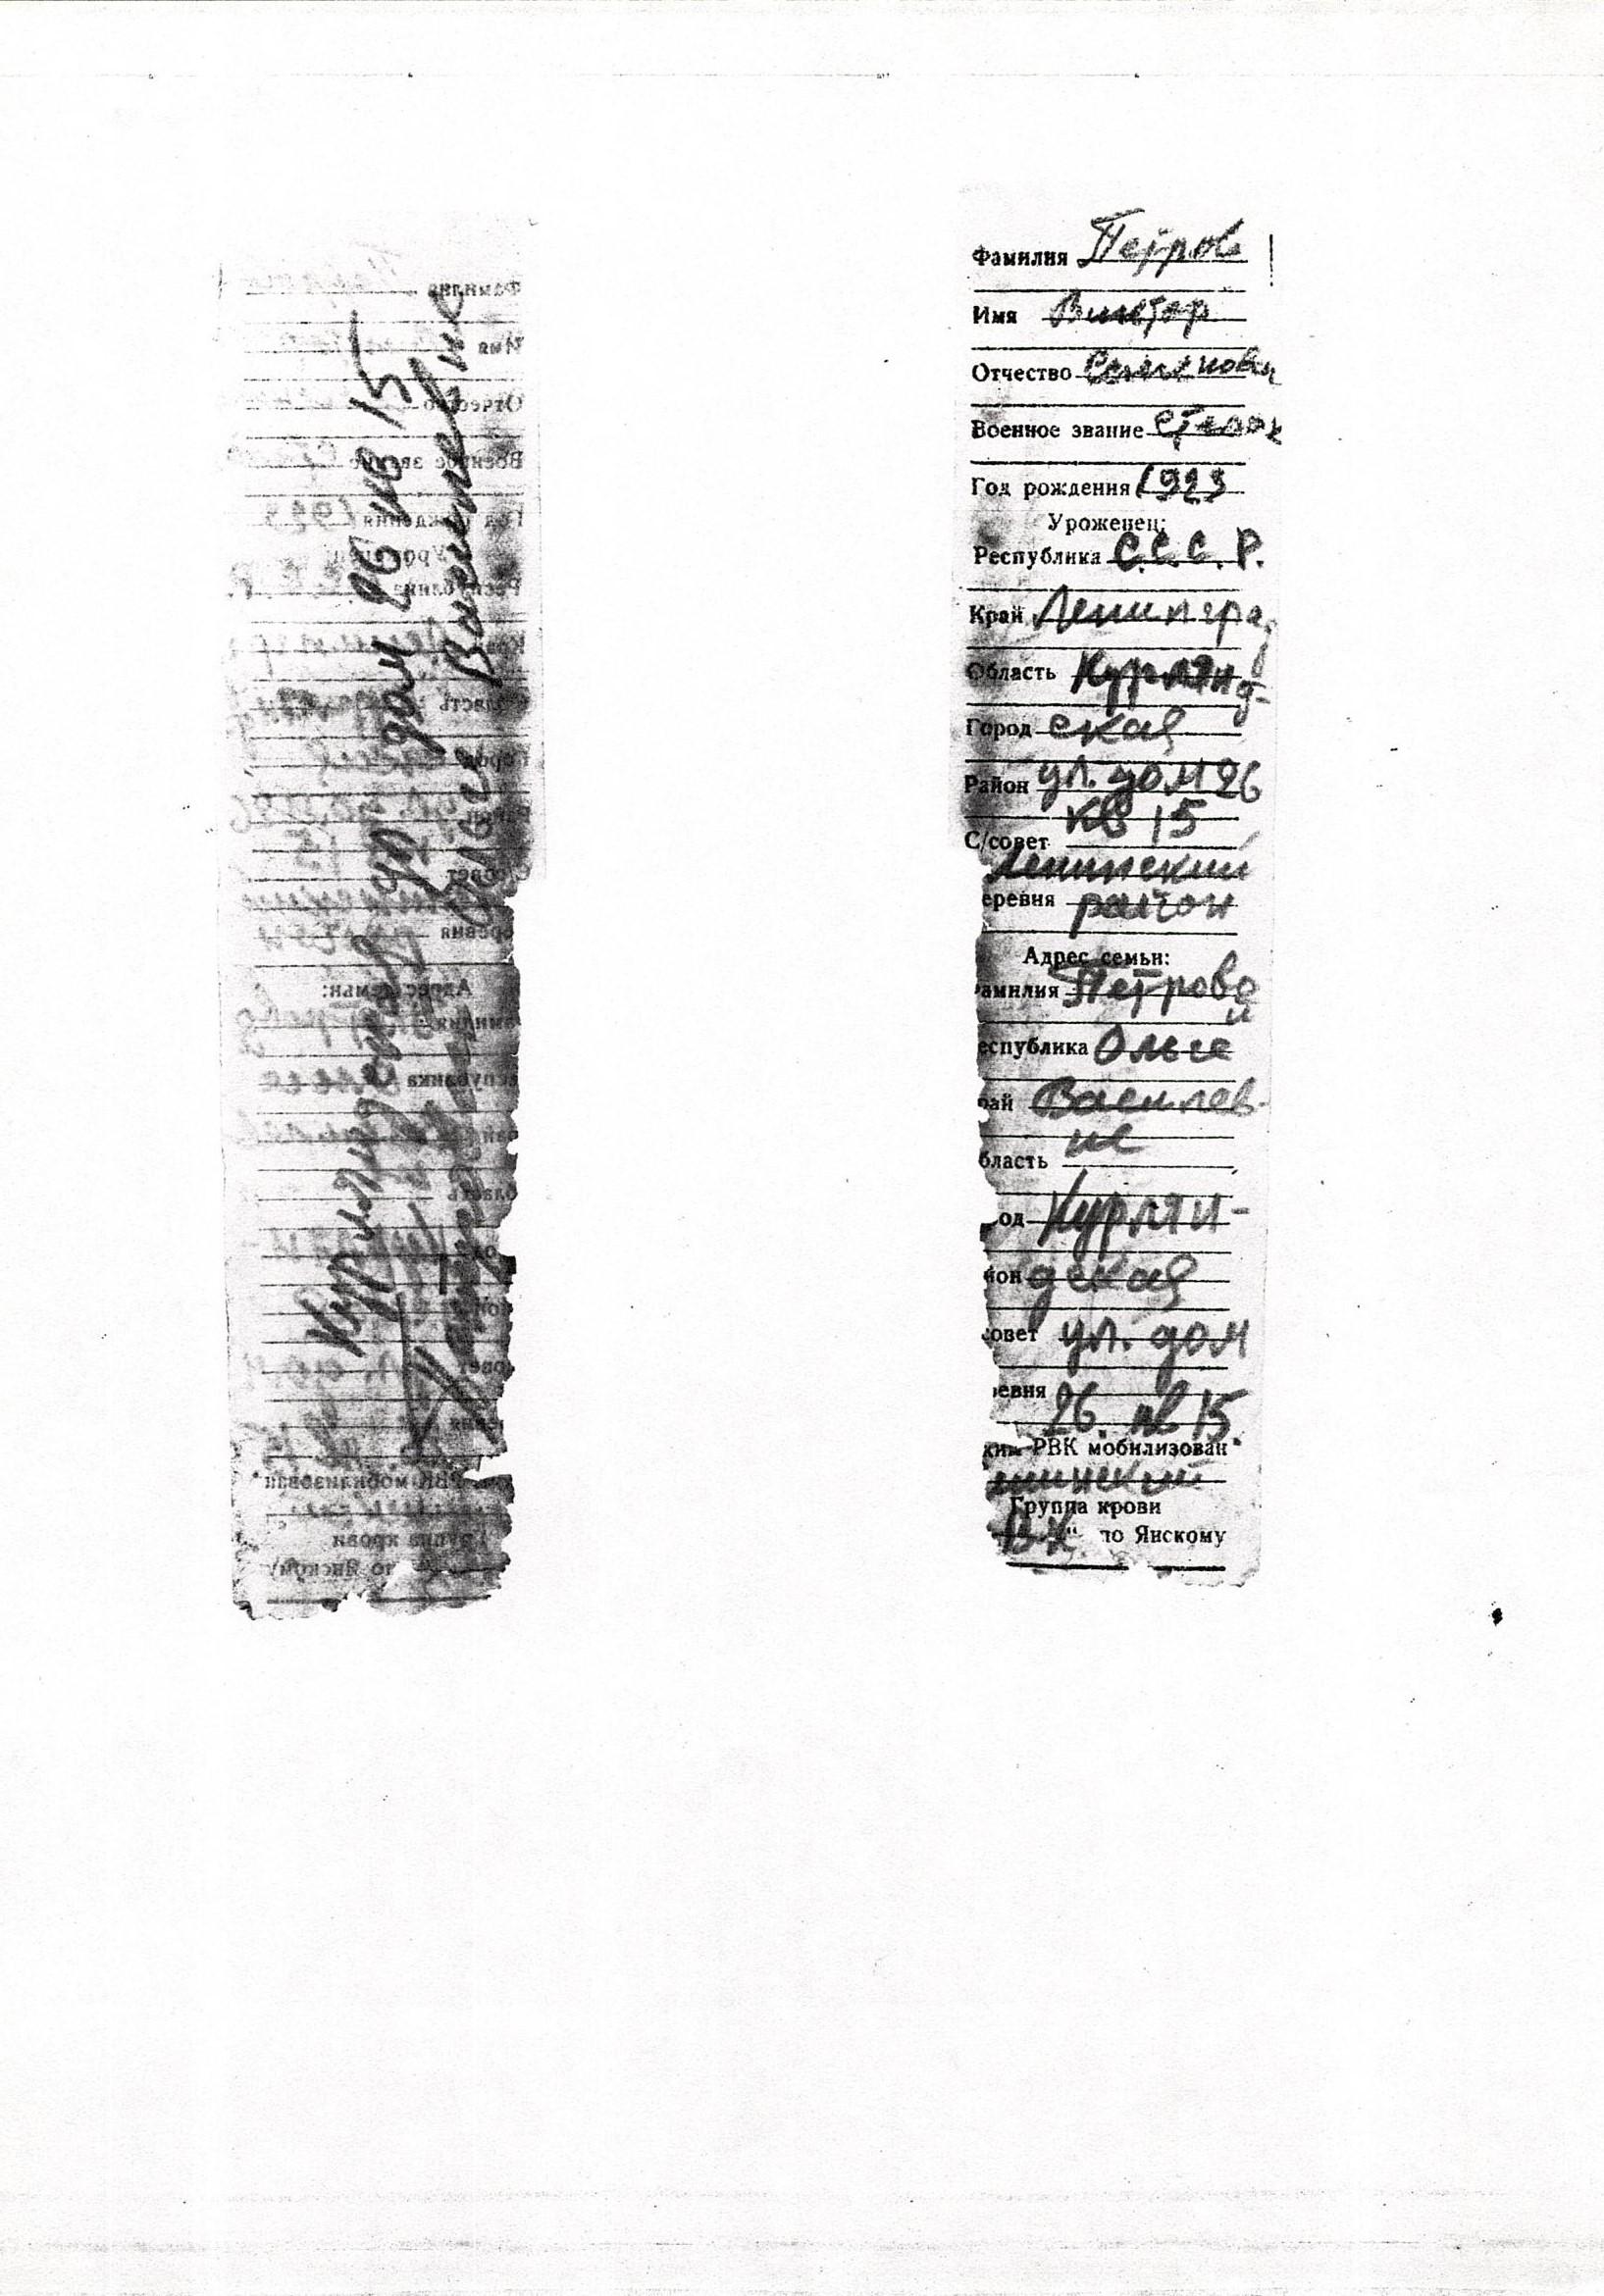 Курляндская ул дом 26 кв 15
Ольге Васильевне
Фамилия Петров
Имя Виктор
Отчество Семенович
Военное звание стрелок
Год рождения 1923
Уроженец:
Республика С.С.С.Р.
Край Ленинград
Область Курлянд-
Город ская
Район ул. дом 26
С/совет кв 15
Ленинский
еревня район
Адрес семьи:
амилия Петровой
еспублика Ольге
рай Васильев-
бласть не
од Курлян-
йон дская
совет ул. дом
ревня 26. кв 15.
ким РВК мобилизован
енинский
Группа крови
" по Янскому